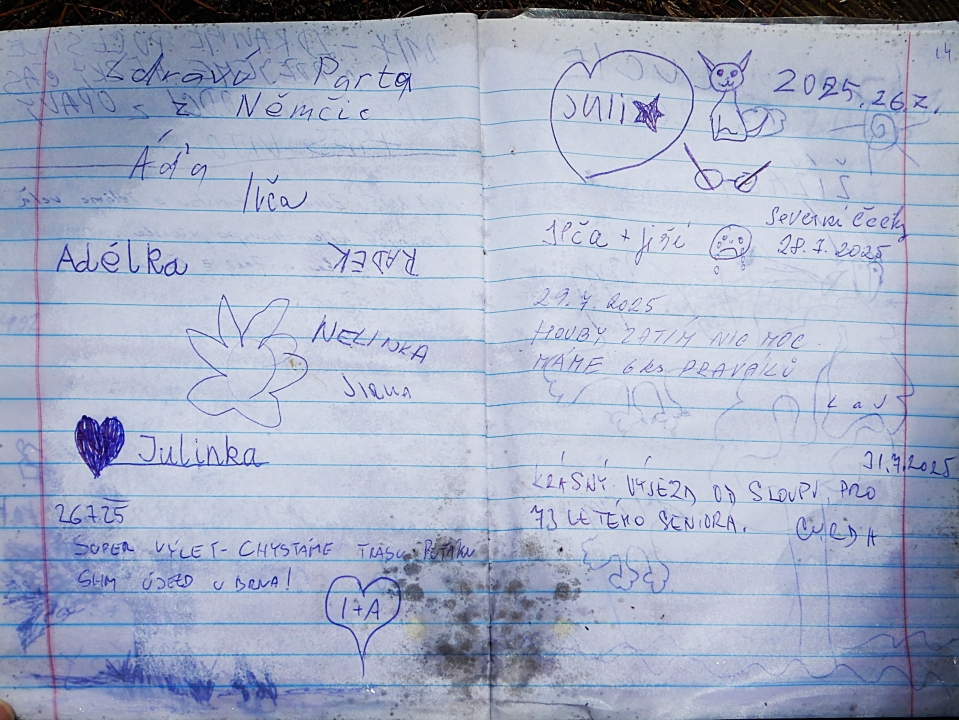 Zdraví Parta
z Němčic
Áďa
Ivča
Adélka
RADEK
NELINKA
JIRKA
Julinka
26.7.25
SUPER VÝLET - CHYSTÁME TRASU
ÚJEZD U BRNA!
I+A
JULI
2025.26.7.
Ilča + Jiří
28.7.2025
29.7.2025
HOUBY ZATÍM NIC MOC.
MÁME 6 ks PRAVÁKŮ
31.7.2025
KRÁSNÝ VÝJEZD OD SLOUPU, PRO
73 LETÉHO SENIORA.